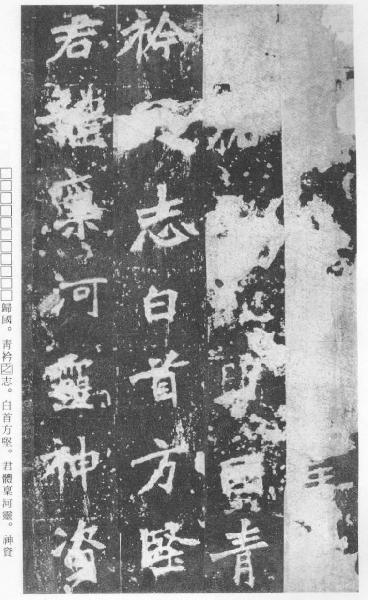 歸國青
衿志白首方堅
君體稟河靈神資
□□□□□□□□□□□歸國。青衿之志。白首方堅。君體稟河靈。神資